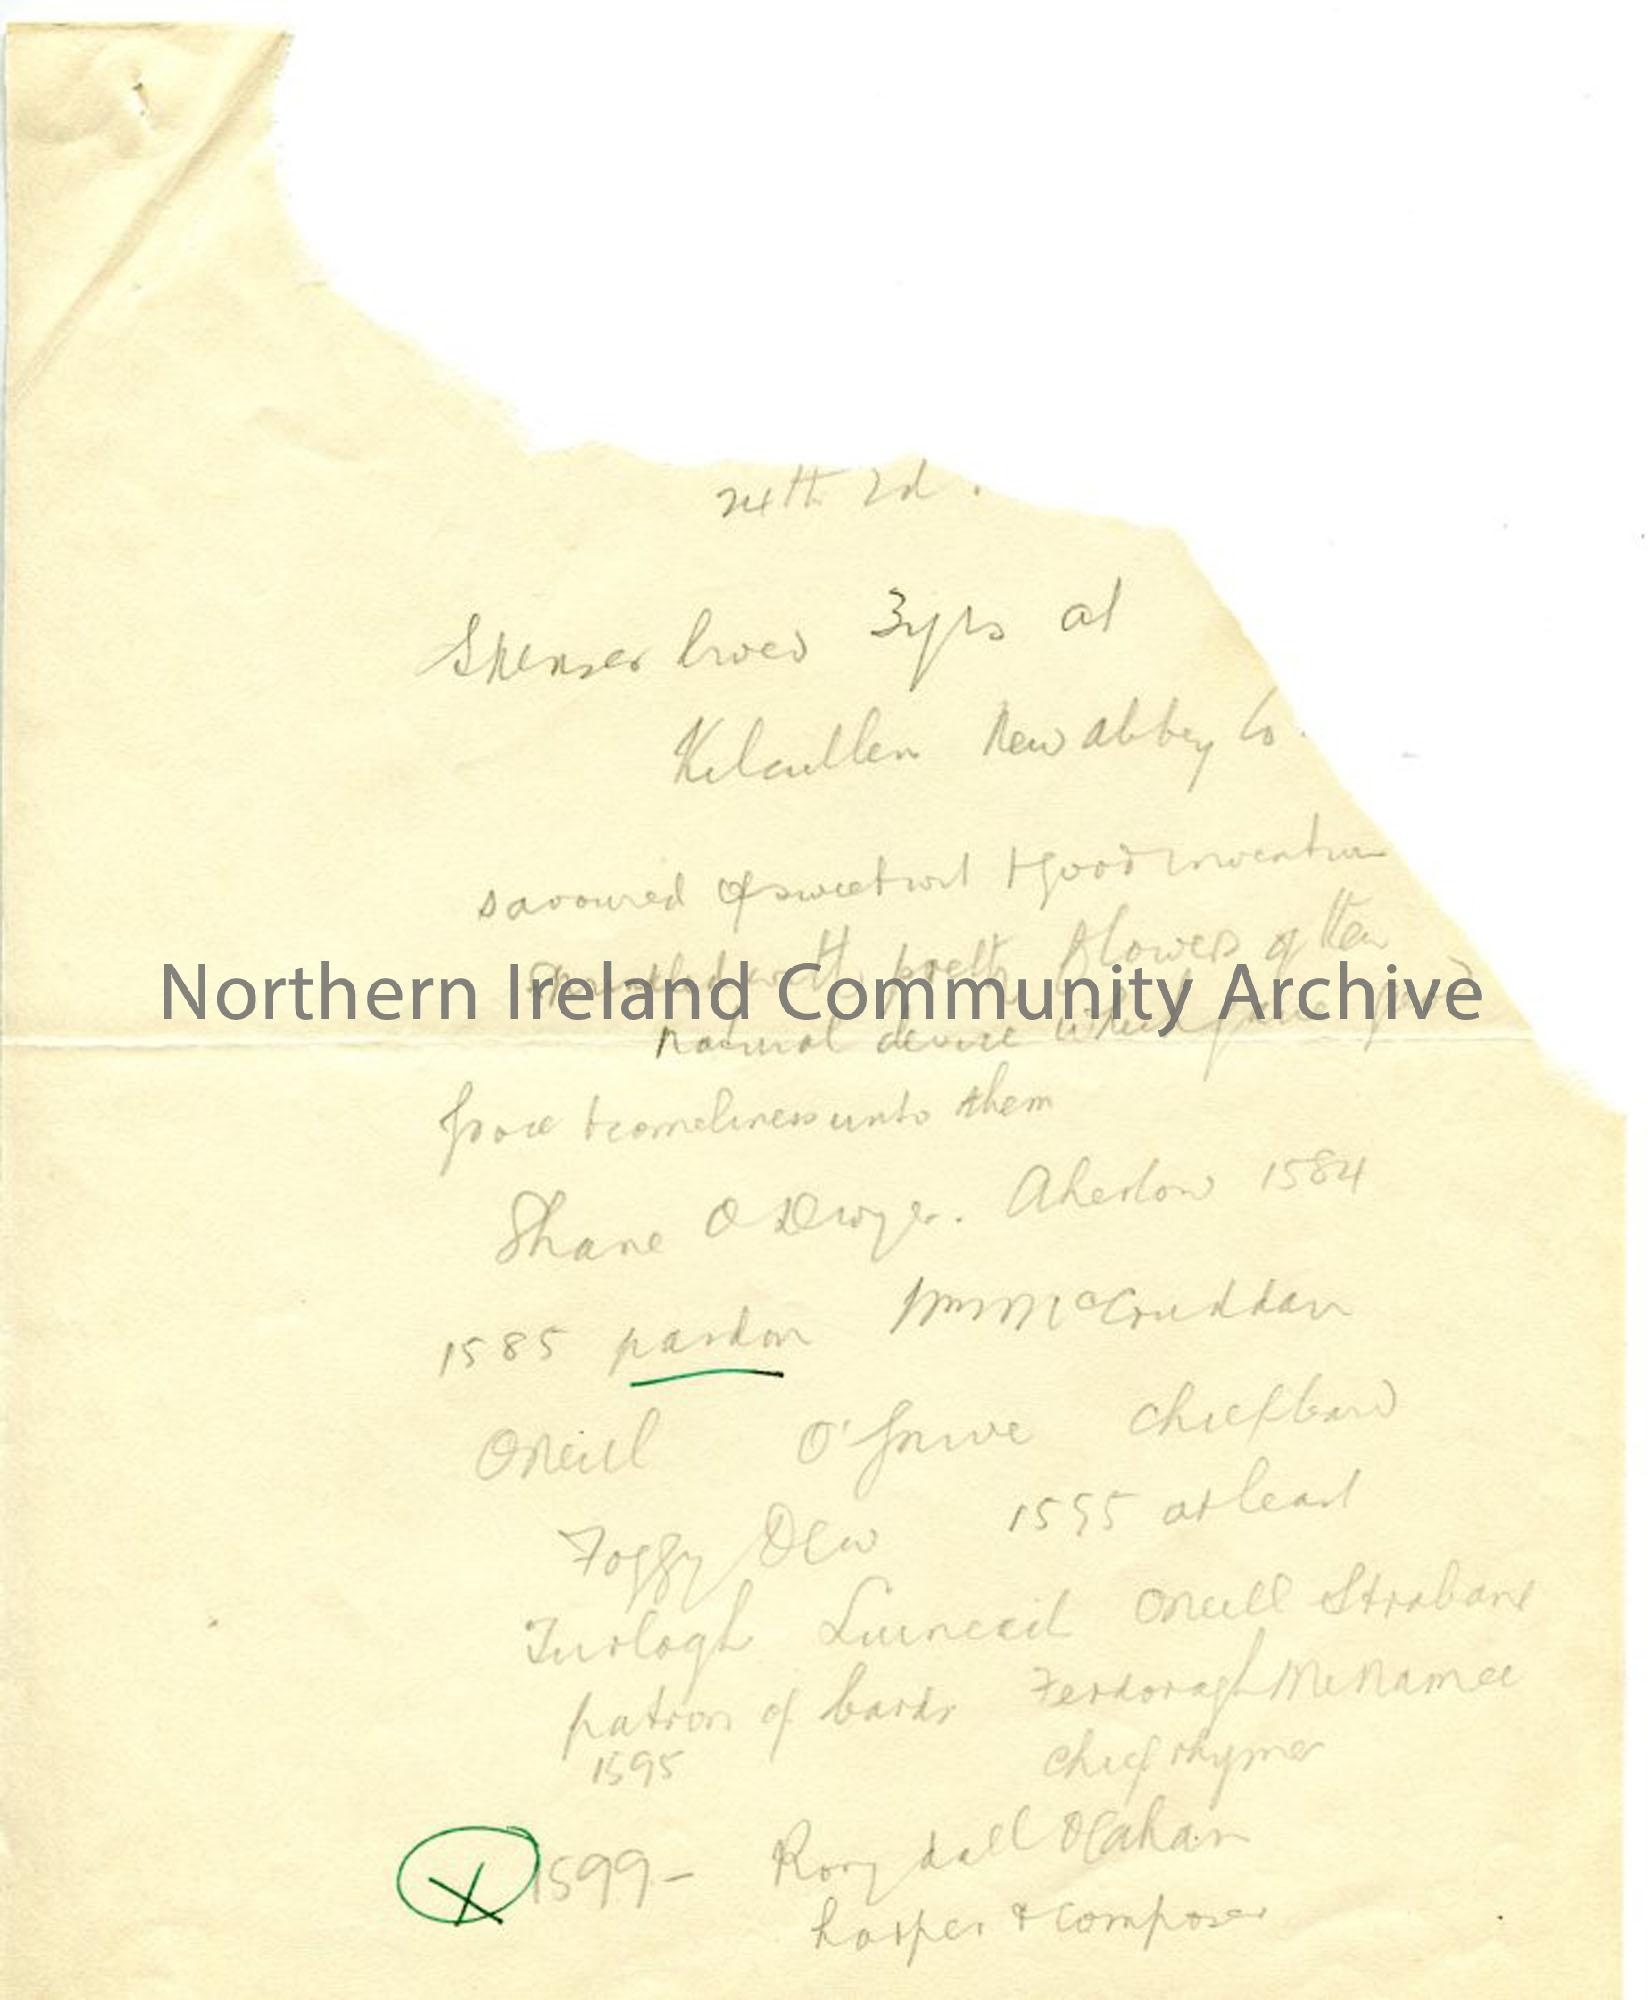 24th 2d.
Spenser lived 3yrs at
Kilcullen New Abbey Co.
savoured of sweet wit & good invention
sprinkled with pretty flowers of their
Northern Ireland Community Archive
natural device which gave good
grace & comeliness unto them
Shane O Dwyer. Aherlow 1584
1585 pardon Wm McCruddan
ONeill O'Gnive chief bard
Foggy Dew 1595 at least
Turlogh Luineach ONeill Strabane
patron of bards Ferdoragh McNamee
1595 chief rhymer
X 1599- Rory dall OCahan
harper & composer